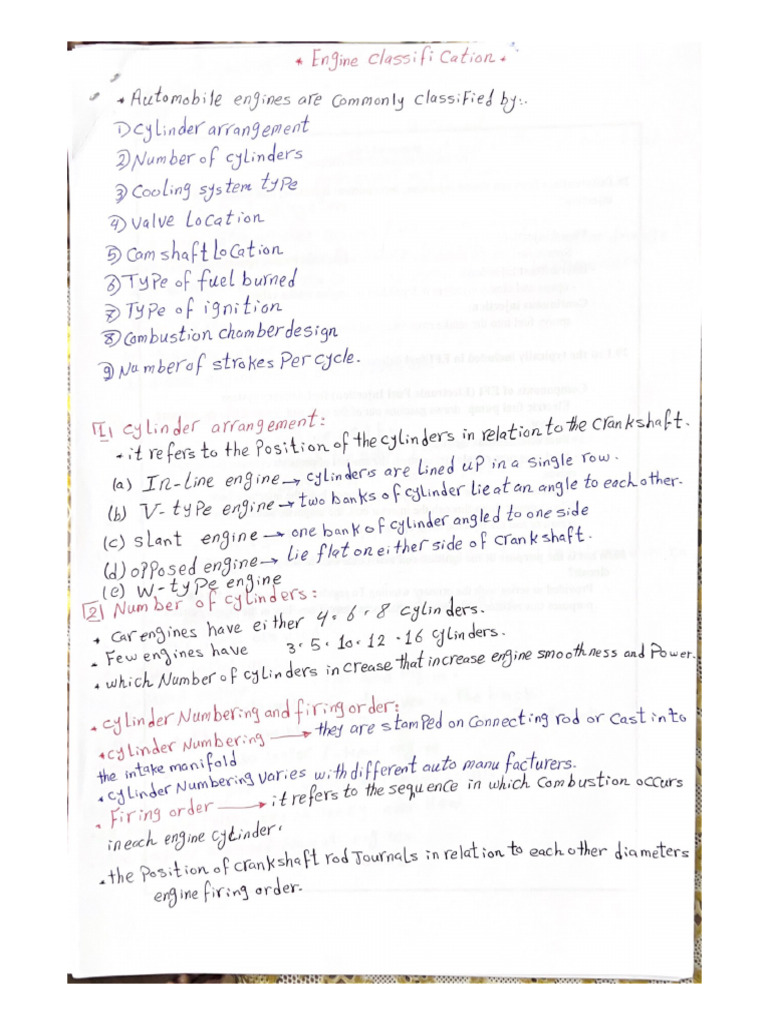 * Engine classification *
* Automobile engines are commonly classified by:.
1) cylinder arrangement
2) Number of cylinders
3) Cooling system type
4) Valve Location
5) Camshaft Location
6) Type of fuel burned
7) Type of ignition
8) Combustion chamber design
9) Number of strokes Per cycle.
[1] cylinder arrangement:
* it refers to the Position of the cylinders in relation to the crankshaft.
(a) In-line engine → cylinders are lined up in a single row.
(b) V-type engine → two banks of cylinder lie at an angle to each other.
(c) slant engine → one bank of cylinder angled to one side
(d) opposed engine → lie flat on either side of crankshaft.
(e) W-type engine
[2] Number of cylinders:
* car engines have either 4, 6, 8 cylinders.
* Few engines have 3, 5, 10, 12, 16 cylinders.
* which Number of cylinders increase that increase engine smoothness and Power.
* cylinder Numbering and firing order:
* cylinder Numbering → they are stamped on connecting rod or cast into
the intake manifold
* cylinder Numbering varies with different auto manufacturers.
* Firing order → it refers to the sequence in which combustion occurs
in each engine cylinder.
* the Position of crankshaft rod Journals in relation to each other diameters
engine firing order.